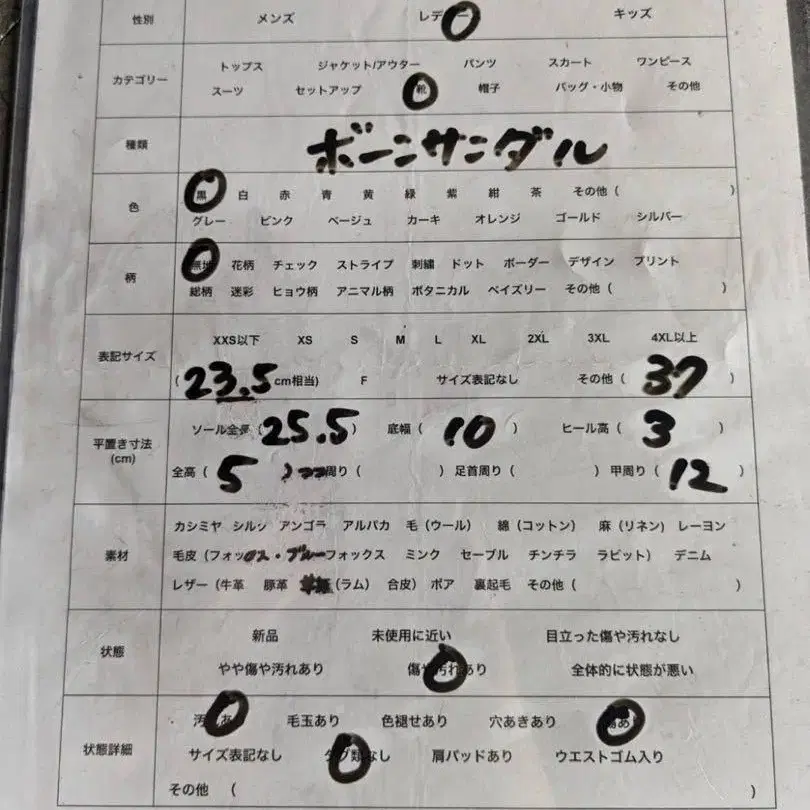 性別 メンズ レディース キッズ
カテゴリー トップス ジャケット/アウター パンツ スカート ワンピース
スーツ セットアップ 靴 帽子 バッグ・小物 その他
種類 ボーンサンダル
色 黒 白 赤 青 黄 緑 紫 紺 茶 その他 ( )
グレー ピンク ベージュ カーキ オレンジ ゴールド シルバー
柄 無地 花柄 チェック ストライプ 刺繍 ドット ボーダー デザイン プリント
総柄 迷彩 ヒョウ柄 アニマル柄 ボタニカル ペイズリー その他 ( )
表記サイズ XXS以下 XS S M L XL 2XL 3XL 4XL以上
( 23.5 cm相当) F サイズ表記なし その他 ( 37 )
平置き寸法 (cm) ソール全長 ( 25.5 底幅 ( 10 ) ヒール高 ( 3 )
全高 ( 5 ) 周り ( ) 足首周り ( ) 甲周り ( 12 )
素材 カシミヤ シルク アンゴラ アルパカ 毛 (ウール) 綿 (コットン) 麻 (リネン) レーヨン
毛皮 (フォックス・ブルーフォックス ミンク セーブル チンチラ ラビット) デニム
レザー (牛革 豚革 (ラム) 合皮) ボア 裏起毛 その他 ( )
状態 新品 未使用に近い 目立った傷や汚れなし
やや傷や汚れあり 傷や汚れあり 全体的に状態が悪い
状態詳細 汚れあり 毛玉あり 色褪せあり 穴あきあり 傷あり
サイズ表記なし タグ類なし 肩パッドあり ウエストゴム入り
その他 ( )